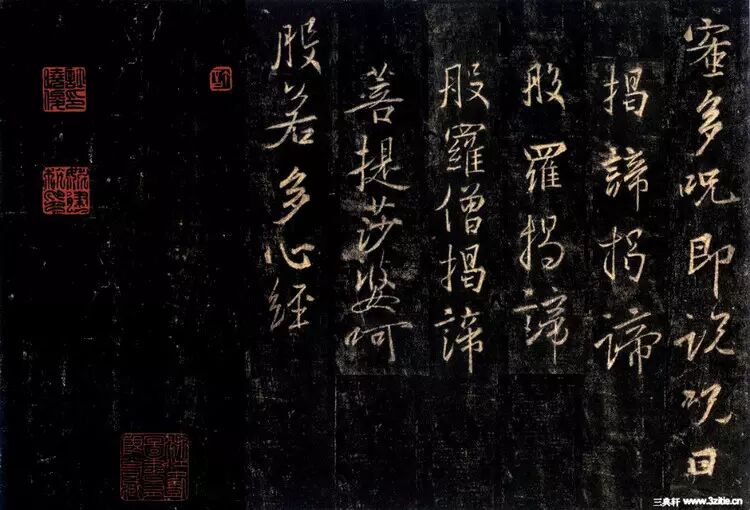 蜜多呪即說呪曰
揭諦揭諦
般羅揭諦
般羅僧揭諦
菩提莎婆呵
般若多心經
三典轩 www.3zitie.cn